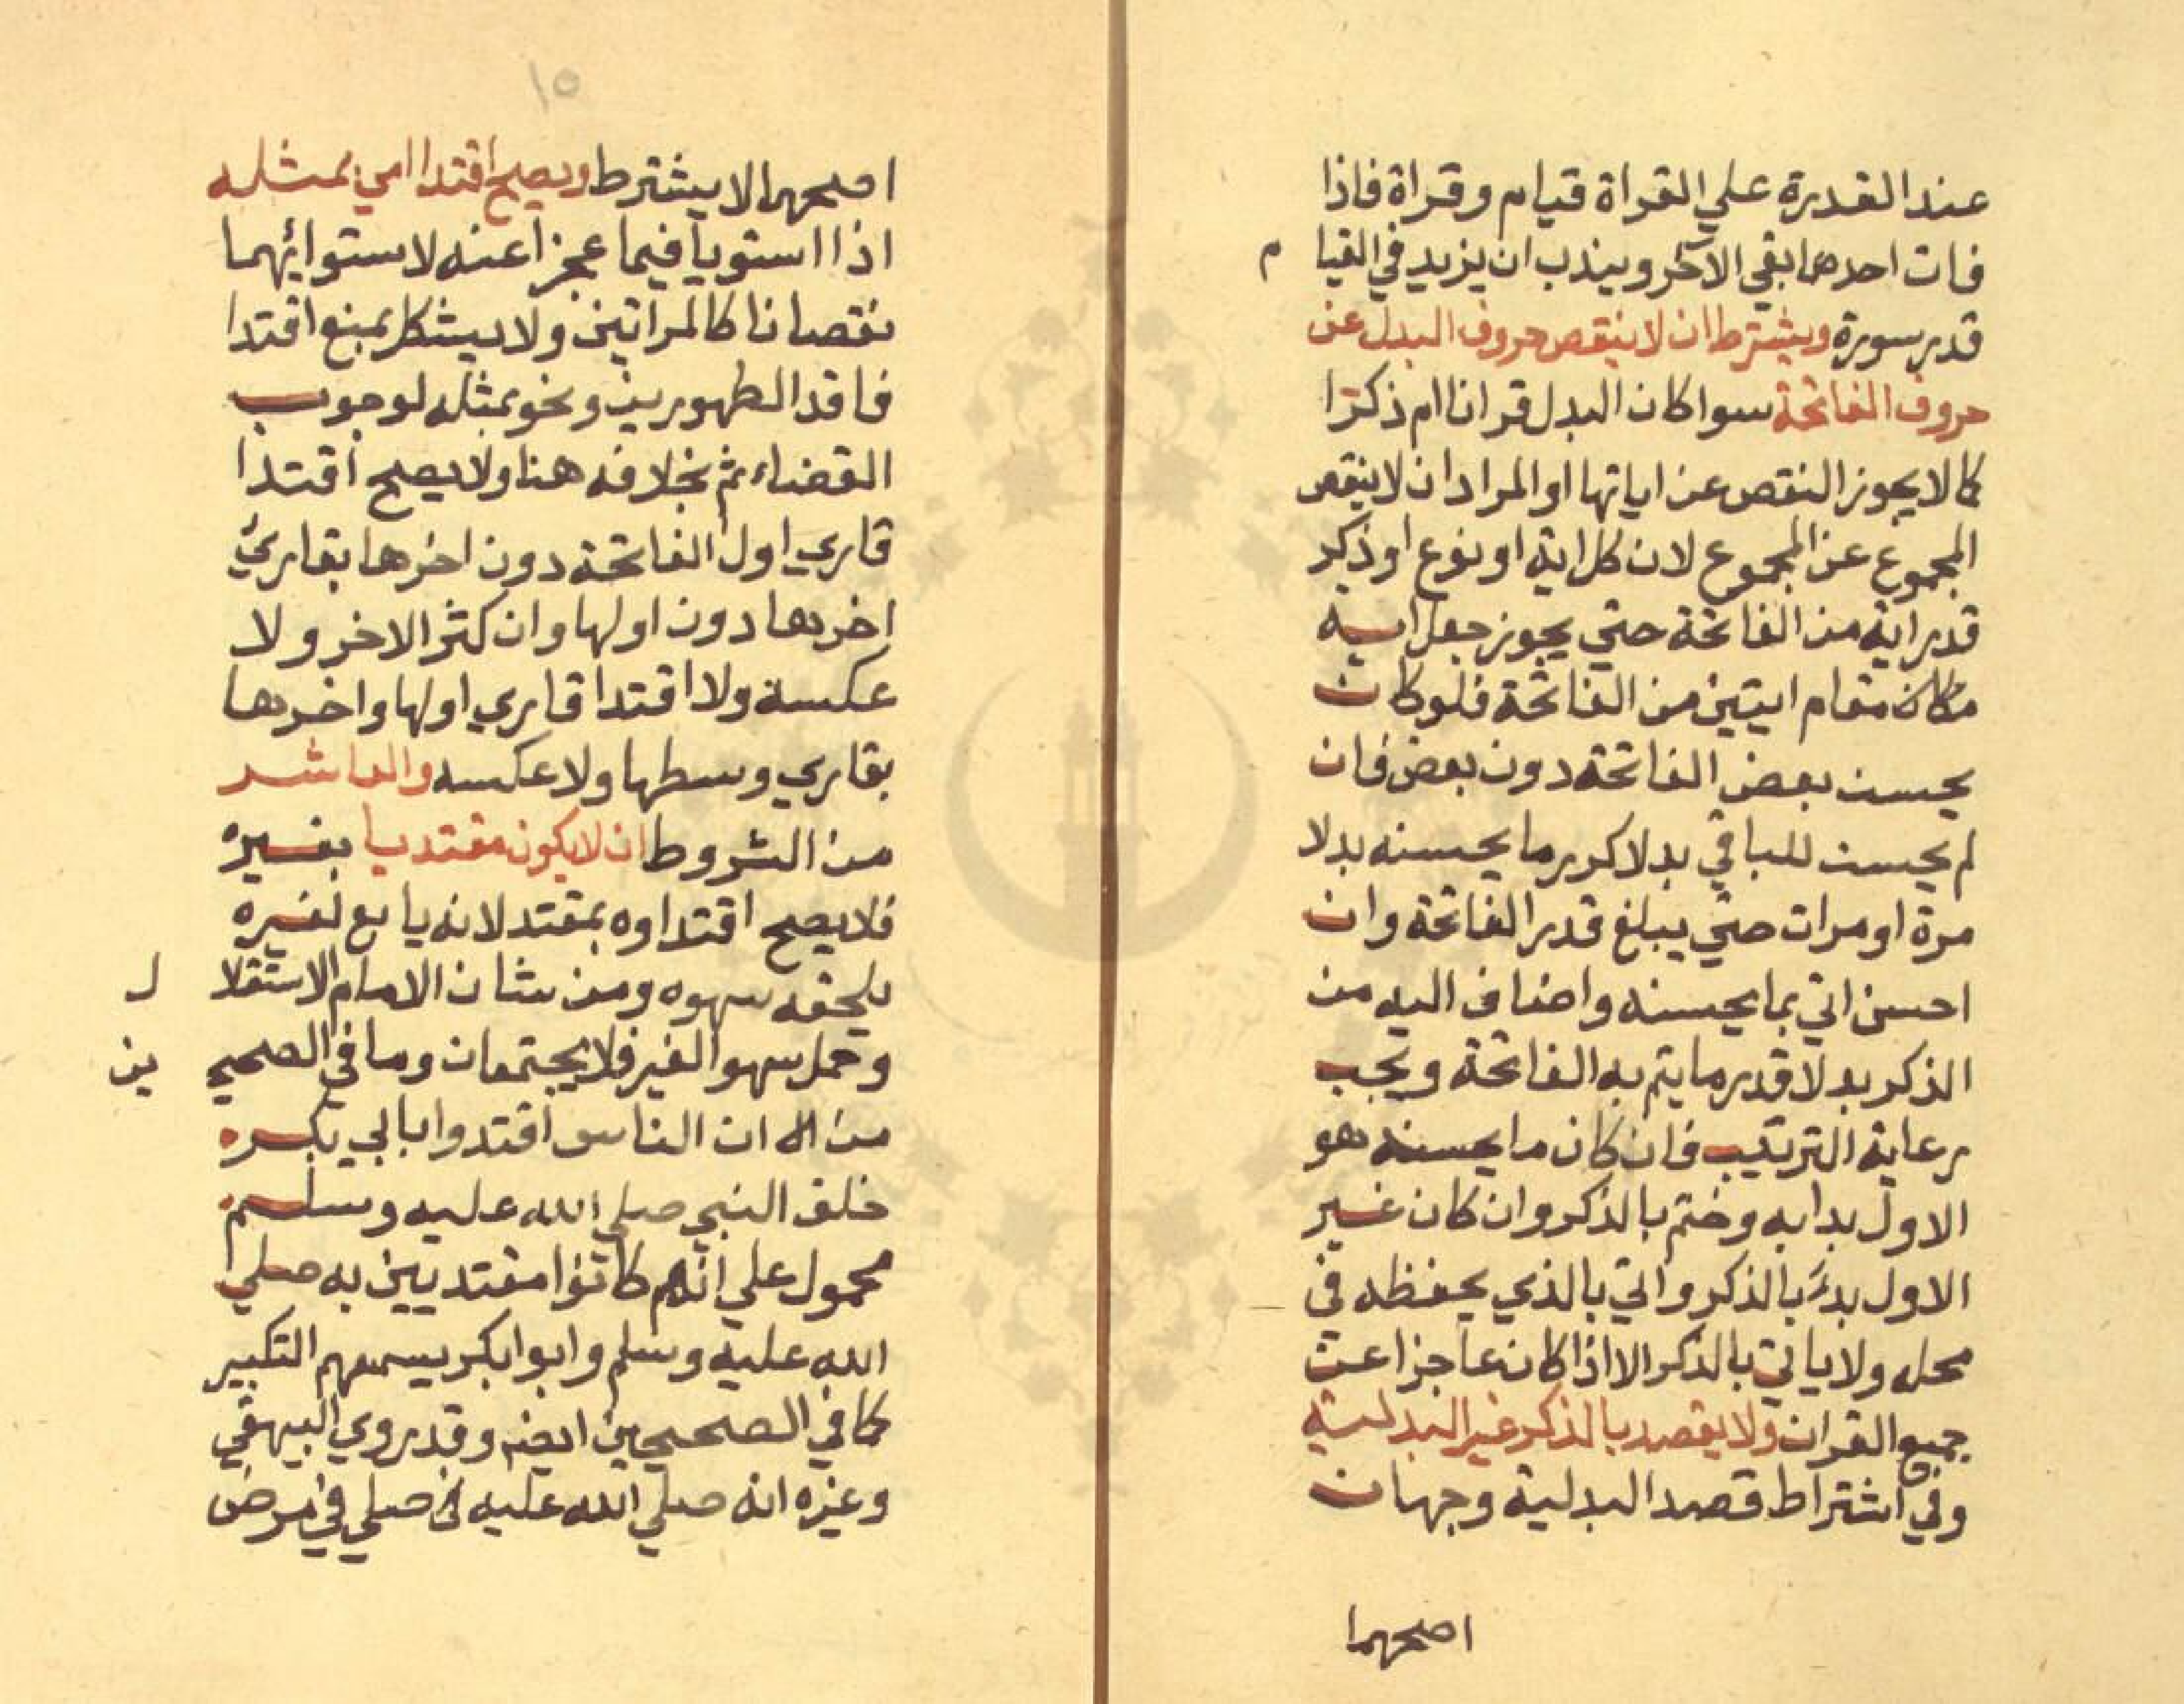 عند القدرة علي القراة قيام وقراة فاذا
فات احدهما بقي الآخر ويندب ان يزيد في القيا م
قدر سورة ويشترط ان لا ينقص حروف البدل عن
حروف الفاتحة سوا كان البدل قرانا ام ذكرا
كما لا يجوز النقص عن اياتها او المراد ان لا ينقص
المجموع عن المجموع لان كل اية او نوع او ذكر
قدر اية من الفاتحة حتي يجوز جعل اية
مكان مقام ايتين من الفاتحة فلو كان
يحسن بعض الفاتحة دون بعض فان
لم يحسن للباقي بدلا كرر ما يحسنه بدلا
مرة او مرات حتي يبلغ قدر الفاتحة وان
احسن اتي بما يحسنه واضاف اليه من
الذكر بدلا قدر ما يتم به الفاتحة ويجب
رعاية الترتيب فان كان ما يحسنه هو
الاول بدا به وختم بالذكر وان كان غير
الاول بدئ بالذكر واتي بالذي يحفظه في
محله ولا ياتي بالذكر الا اذا كان عاجزا عن
جميع القران ولا يقصد بالذكر غير البدلية
وفي اشتراط قصد البدلية وجهان
اصحهما
١٥
اصحهما لا يشترط ويصح اقتدا امي بمثله
اذا استويا فيما عجزا عنه لاستوائهما
نقصانا كالمراتين ولا يشكل بمنع اقتدا
فاقد الطهورين ونحو بمثله لوجوب
القضاء ثم بخلافه هنا ولا يصح اقتدا
قاري اول الفاتحة دون اخرها بقارئ
اخرها دون اولها وان كثر الاخر ولا
عكسه ولا اقتدا قاري اولها واخرها
بقاري وسطها ولا عكسه والعاشر
من الشروط ان لا يكون مقتديا بغيره
فلا يصح اقتداوه بمقتد لانه يابع لغيره
يلحقه سهوه ومن شان الامام الاستقلا ل
وحمل سهو الغير فلا يجتمعان وما في الصحيح ين
من ان الناس اقتدوا بابي بكره
خلف النبي صلي الله عليه وسلم
محمول علي انهم كانوا مقتديين به صلي
الله عليه وسلم وابوا بكر يسمعهم التكبير
كما في الصحيحين ايضه وقد روي البيهقي
وغيره انه صلي الله عليه صلي في مرض